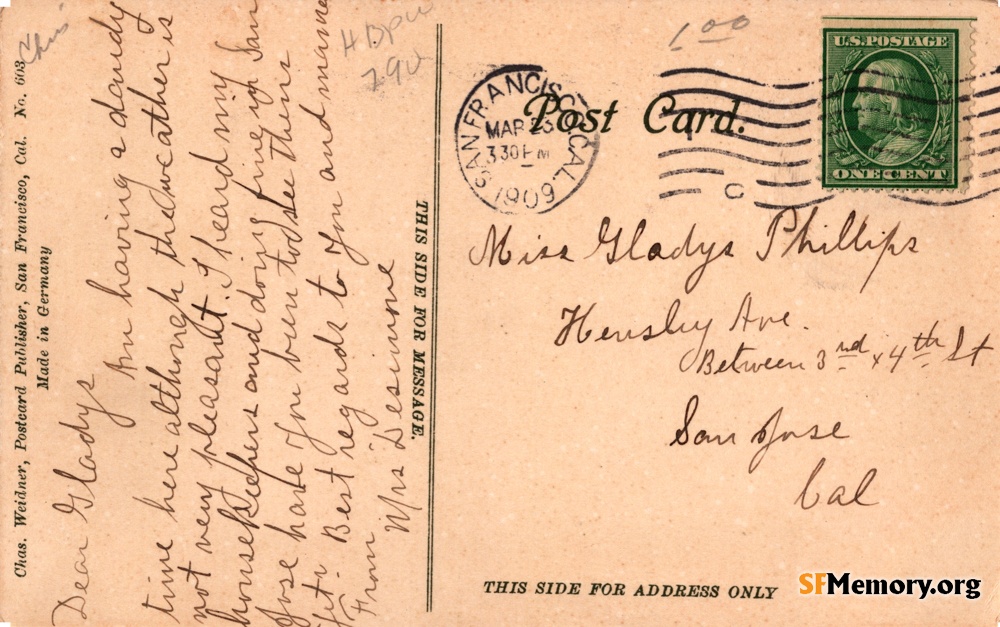 Chas. Weidner, Postcard Publisher, San Francisco, Cal. No. 603
Made in Germany
Chris
1 00
SAN FRANCISCO, CAL.
MAR 23
3 30 PM
1909
C
U.S. POSTAGE
ONE CENT
Post Card.
Dear Gladys
Am having a dandy
time here although the weather is
not very pleasant. I heard my
housekeepers and doing fine in San
Jose have you been to see theirs
yet. Best regards to you and mama
From
Mrs Desimone
THIS SIDE FOR MESSAGE.
Miss Gladys Phillips
Hensley Ave.
Between 3rd x 4th St
San Jose
Cal
THIS SIDE FOR ADDRESS ONLY
SFMemory.org